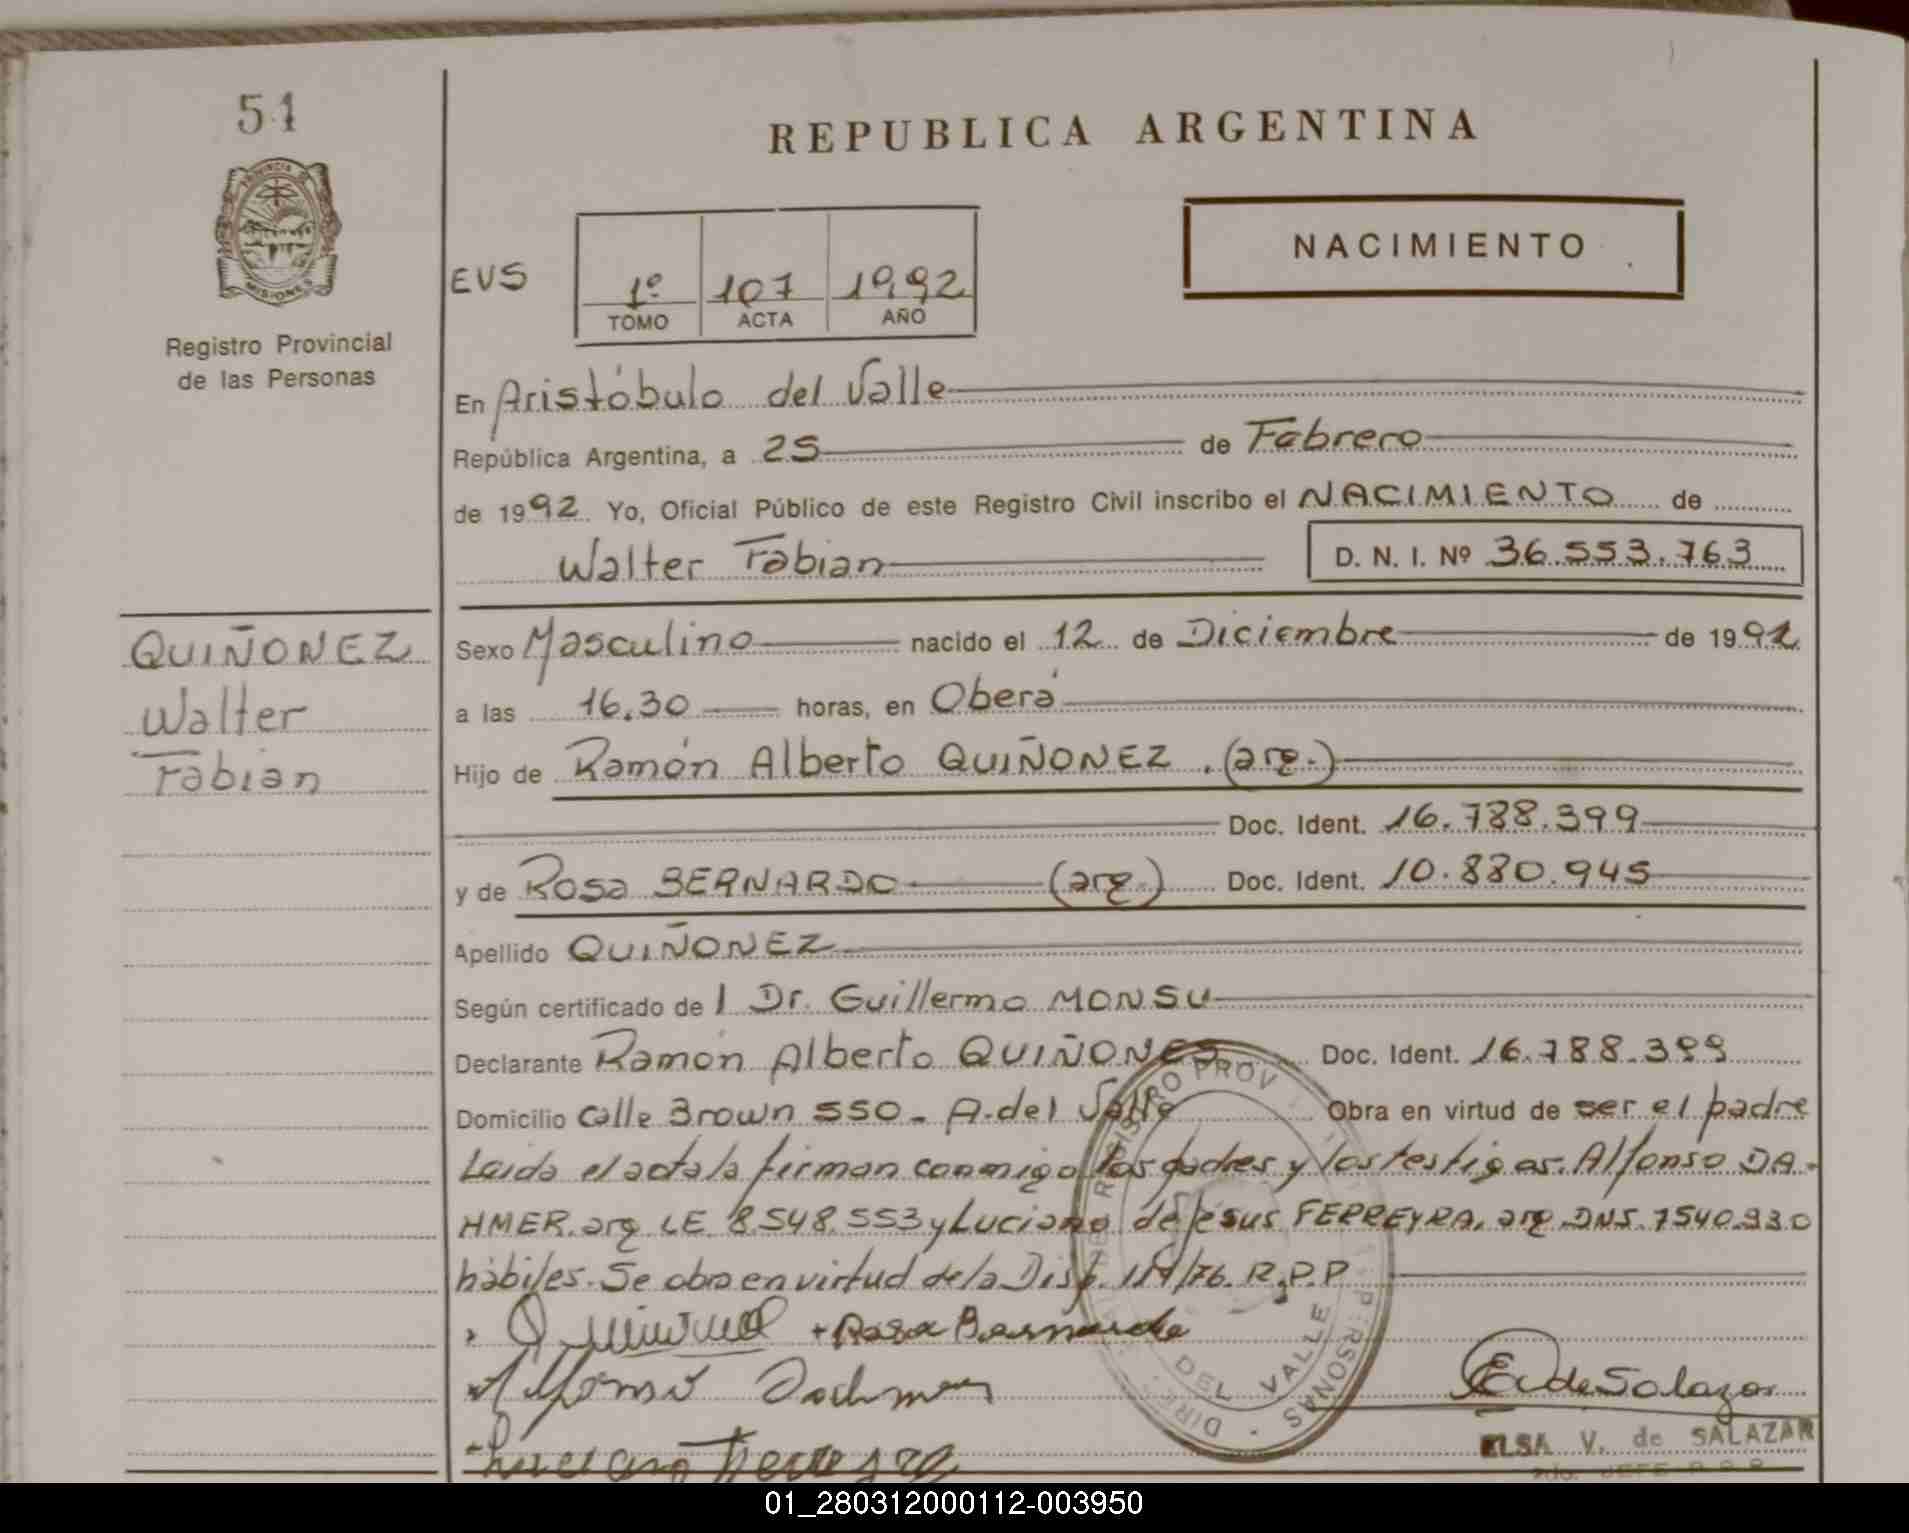 51
REPUBLICA ARGENTINA
PROVINCIA DE
MISIONES
Registro Provincial
de las Personas
NACIMIENTO
EVS
1º 107 1992
TOMO ACTA AÑO
En Aristóbulo del Valle
República Argentina, a 25 de Febrero
de 1992 Yo, Oficial Público de este Registro Civil inscribo el NACIMIENTO de
Walter Fabian D. N. I. Nº 36.553.763
QUIÑONEZ
Walter
Fabian
Sexo Masculino nacido el 12 de Diciembre de 19
a las 16.30 horas, en Oberá
Hijo de Ramón Alberto QUIÑONEZ. (arg.)
Doc. Ident. 16.788.399
y de Rosa BERNARDO (arg.) Doc. Ident. 10.880.945
Apellido QUIÑONEZ
Según certificado de l Dr. Guillermo MONSU
Declarante Ramón Alberto QUIÑONES Doc. Ident. 16.788.399
Domicilio Calle Brown 550 - A. del Valle Obra en virtud de ser el padre
Leida el acta la firman conmigo los padres y los testigos. Alfonso DA-
HMER. arg LE 8.548.553 y Luciano de Jesus FERREYRA, arg. 7540.930
hábiles. Se obra en virtud de la Disp. 119/76. R.P.P
Rosa Bernardo
Alfonso
E V de Salazar
Luciano Ferreyra
ELSA V. de SALAZAR
JEFE R.P.P.
REGISTRO PROV
PERSONAS
DEL VALLE
01_280312000112-003950